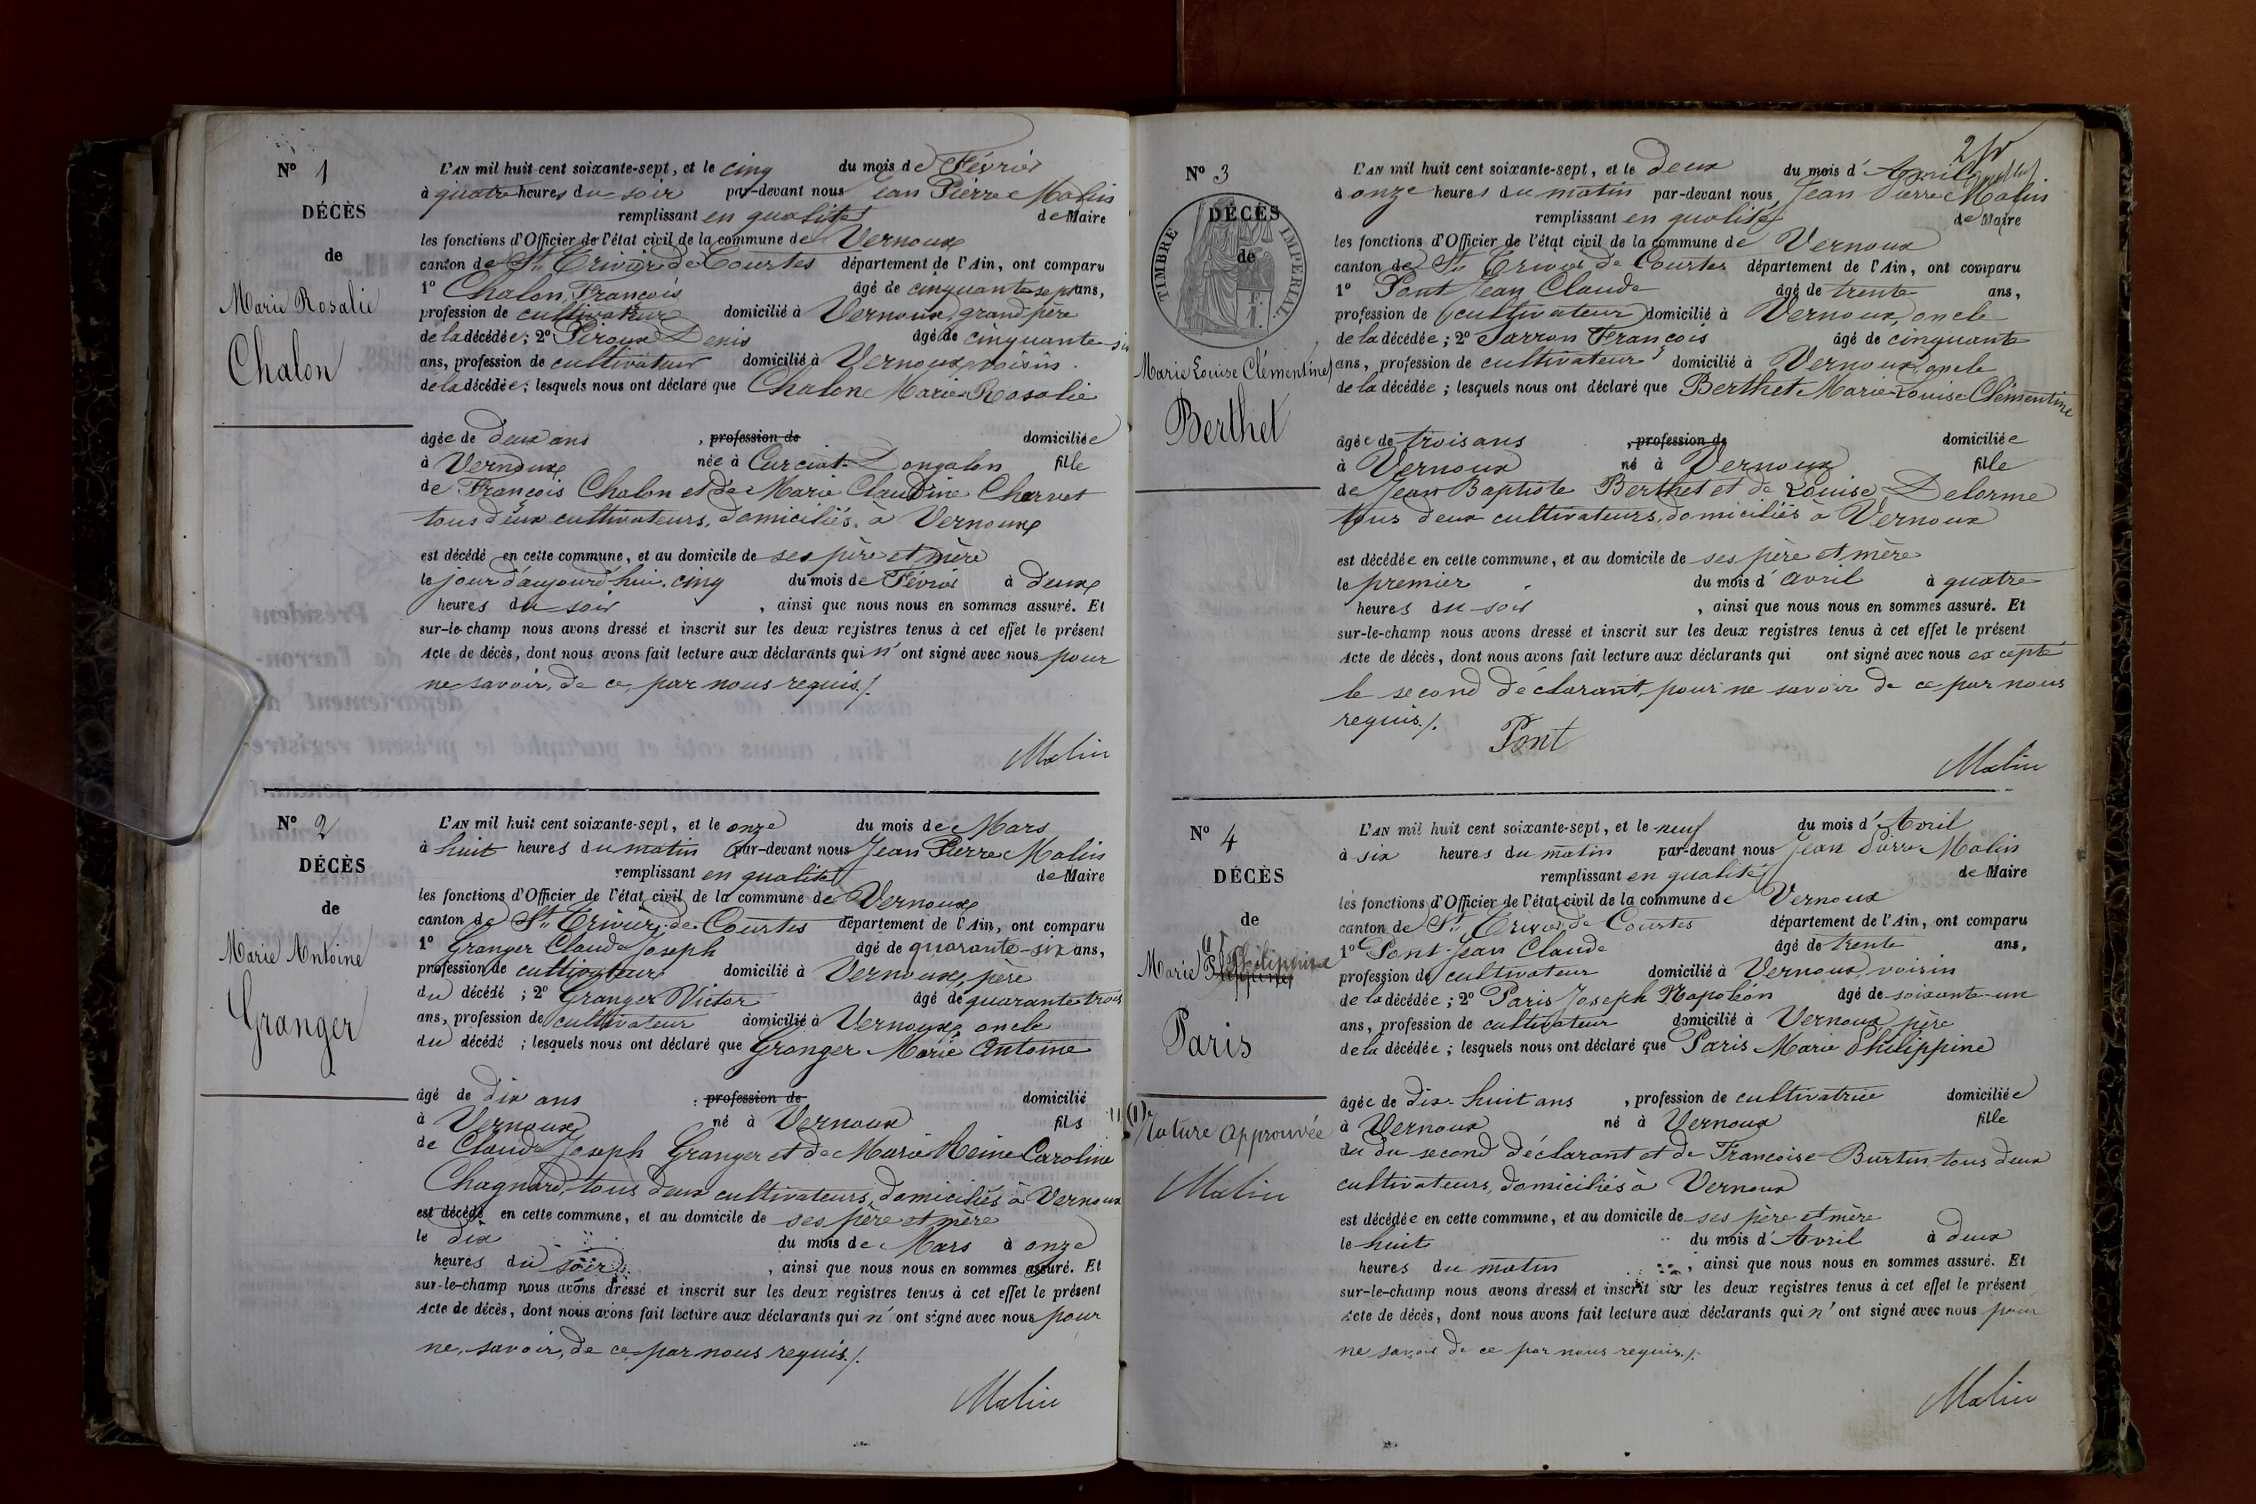 N° 1
DÉCÈS
de
Marie Rosalie
Chalon
L'AN mil huit cent soixante-sept, et le cinq du mois de Février
à quatre heures du soir par-devant nous Jean Pierre Malin
remplissant en qualité de Maire
les fonctions d'Officier de l'état civil de la commune de Vernoux
canton de St Trivier de Courtes département de l'Ain, ont comparu
1° Chalon François âgé de cinquante sept ans,
profession de cultivateur domicilié à Vernoux, grand père
de la décédée; 2° Piroux Denis âgé de cinquante six
ans, profession de cultivateur domicilié à Vernoux, voisin
de la décédée; lesquels nous ont déclaré que Chalon Marie Rosalie
âgée de deux ans , profession de domiciliée
à Vernoux née à Curciat-Dongalon fille
de François Chalon et de Marie Claudine Charvet
tous deux cultivateurs, domiciliés à Vernoux
est décédé en cette commune, et au domicile de ses père et mère
le jour d'aujourd'hui cinq du mois de Février à deux
heures du soir , ainsi que nous nous en sommes assuré. Et
sur-le-champ nous avons dressé et inscrit sur les deux registres tenus à cet effet le présent
Acte de décès, dont nous avons fait lecture aux déclarants qui n'ont signé avec nous pour
ne savoir, de ce par nous requis./.
Malin
N° 2
DÉCÈS
de
Marie Antoine
Granger
L'AN mil huit cent soixante-sept, et le onze du mois de Mars
à huit heures du matin par-devant nous Jean Pierre Malin
remplissant en qualité de Maire
les fonctions d'Officier de l'état civil de la commune de Vernoux
canton de St Trivier de Courtes département de l'Ain, ont comparu
1° Granger Claude Joseph âgé de quarante-six ans,
profession de cultivateur domicilié à Vernoux, père
du décédé ; 2° Granger Victor âgé de quarante trois
ans, profession de cultivateur domicilié à Vernoux, oncle
du décédé ; lesquels nous ont déclaré que Granger Marie Antoine
âgé de dix ans , profession de domicilié
à Vernoux né à Vernoux fils
de Claude Joseph Granger et de Marie Reine Caroline
Chagnard, tous deux cultivateurs, domiciliés à Vernoux
est décédé en cette commune, et au domicile de ses père et mère
le dix du mois de Mars à onze
heures du soir , ainsi que nous nous en sommes assuré. Et
sur-le-champ nous avons dressé et inscrit sur les deux registres tenus à cet effet le présent
Acte de décès, dont nous avons fait lecture aux déclarants qui n'ont signé avec nous pour
ne, savoir, de ce par nous requis./.
Malin
2
N° 3
TIMBRE IMPÉRIAL
DÉCÈS
de
Marie Louise Clémentine
Berthet
L'AN mil huit cent soixante-sept, et le deux du mois d'Avril
à onze heures du matin par-devant nous Jean Pierre Malin
remplissant en qualité de Maire
les fonctions d'Officier de l'état civil de la commune de Vernoux
canton de St Trivier de Courtes département de l'Ain, ont comparu
1° Pont Jean Claude âgé de trente ans,
profession de cultivateur domicilié à Vernoux, oncle
de la décédée; 2° Sarron François âgé de cinquante
ans, profession de cultivateur domicilié à Vernoux, oncle
de la décédée; lesquels nous ont déclaré que Berthet Marie Louise Clémentine
âgée de trois ans , profession de domiciliée
à Vernoux né à Vernoux fille
de Jean Baptiste Berthet et de Louise Delorme
tous deux cultivateurs, domiciliés à Vernoux
est décédée en cette commune, et au domicile de ses père et mère
le premier du mois d'avril à quatre
heures du soir , ainsi que nous nous en sommes assuré. Et
sur-le-champ nous avons dressé et inscrit sur les deux registres tenus à cet effet le présent
Acte de décès, dont nous avons fait lecture aux déclarants qui ont signé avec nous excepté
le second déclarant, pour ne savoir de ce par nous
requis./.
Pont
Malin
N° 4
DÉCÈS
de
Marie Philippine
Paris
(1) Rature approuvée
Malin
L'AN mil huit cent soixante-sept, et le neuf du mois d'Avril
à six heures du matin par-devant nous Jean Pierre Malin
remplissant en qualité de Maire
les fonctions d'Officier de l'état civil de la commune de Vernoux
canton de St Trivier de Courtes département de l'Ain, ont comparu
1° Pont Jean Claude âgé de trente ans,
profession de cultivateur domicilié à Vernoux, voisin
de la décédée; 2° Paris Joseph Napoléon âgé de soixante-un
ans, profession de cultivateur domicilié à Vernoux père
de la décédée; lesquels nous ont déclaré que Paris Marie Philippine
âgée de dix-huit ans , profession de cultivatrice domiciliée
à Vernoux né à Vernoux fille
du second déclarant et de Françoise Burtin tous deux
cultivateurs, domiciliés à Vernoux
est décédée en cette commune, et au domicile de ses père et mère
le huit du mois d'Avril à deux
heures du matin , ainsi que nous nous en sommes assuré. Et
sur-le-champ nous avons dressé et inscrit sur les deux registres tenus à cet effet le présent
Acte de décès, dont nous avons fait lecture aux déclarants qui n'ont signé avec nous pour
ne savoir de ce par nous requis./.
Malin